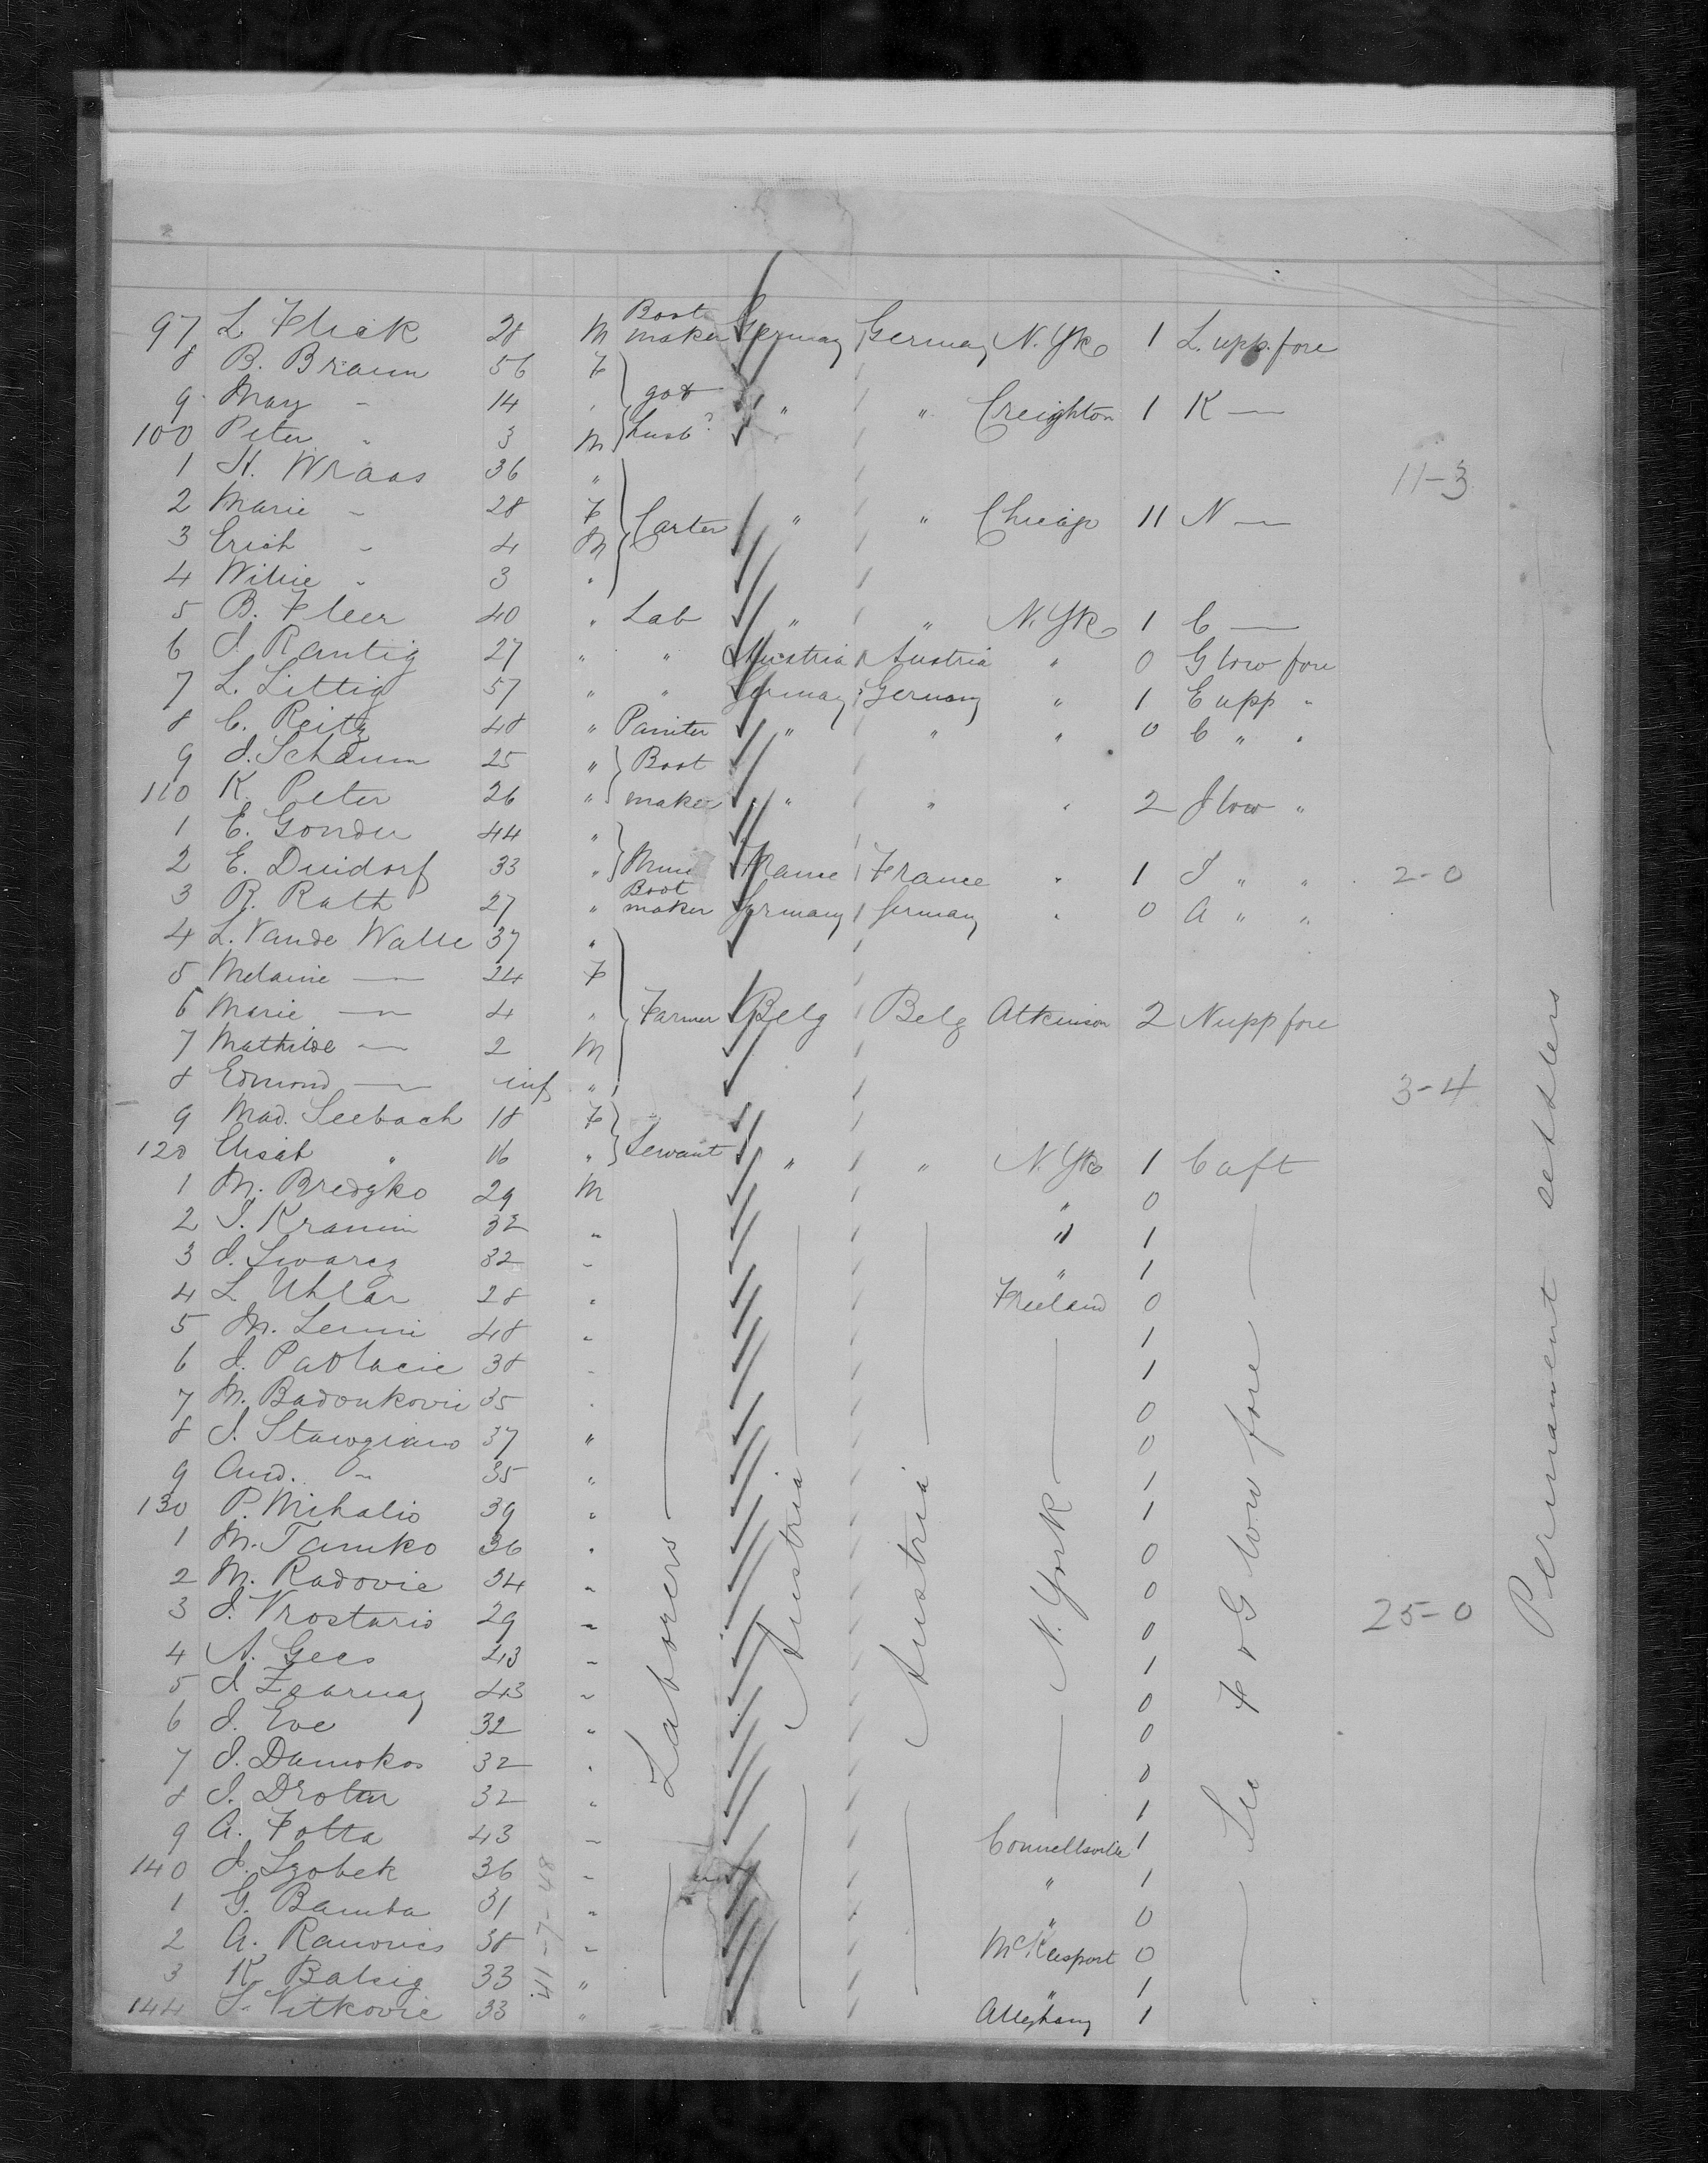 97 L. Flick 28 M Boot maker Germany Germany N. Yk 1 L. upp. fore
8 B. Braun 56 F
9 Mary - 14 " got " " Creighton 1 K —
100 Peter " 3 M husb?
1 H. Wraas 36 " 11-3
2 Marie - 28 F Carter " " Chicago 11 N —
3 Erich - 4 M
4 Willie - 3 "
5 B. Fleer 40 " Lab " " N. Yk 1 C —
6 J. Rantig 27 " " Austria Austria " 0 G low fore
7 L. Littig 57 " " Germany Germany " 1 E upp "
8 C. Reitz 48 " Painter " " " 0 C " "
9 J. Schaum 25 " Boot
110 K. Peter 26 " maker " " " 2 J low "
1 E. Gonder 44 "
2 E. Duidorf 33 " France France " 1 J " " 2-0
3 R. Rath 27 " Boot maker Germany Germany " 0 A " "
4 L. Vande Walle 37 "
5 Melanie — 24 F
6 Marie — 4 " Farmer Belg Belg Atkinson 2 N upp fore
7 Mathilde — 2 M
8 Edmond — inf " 3-4
9 Mad. Seebach 18 F
120 Elisab " 16 " Servant " " N. Yk 1 C aft
1 M. Bredgko 29 M " 0
2 J. Kramin 32 " " 1
3 J. Swarcz 32 " " 1
4 L. Uhlar 28 " Freeland 0
5 M. Lenni 48 " 1
6 J. Pavlacic 38 " 1
7 M. Badonkovic 35 " 0
8 J. 37 " 0
9 And. " 35 " 1
130 P. Mihalio 39 " 1
1 M. Tamko 36 " 0
2 M. Radovic 34 " 0
3 J. Vrostaris 29 " 0
4 A. Gecs 43 " 1
5 J. 43 " 0
6 J. Eve 32 " 0
7 J. Damokos 32 " 0
8 J. Drotar 32 " 1
9 A. Fotta 43 " Connellsville 1
140 J. Szobek 36 " " 1
1 G. Bamba 31 " " 0
2 A. Ranovics 38 " McKeesport 0
3 K. Balsig 33 " " 1
144 S. Vitkovic 33 " Alleghany 1
41-7-48
Laborers
Austria
Austria
N. York
F & G low fore
25-0
Permanent settlers